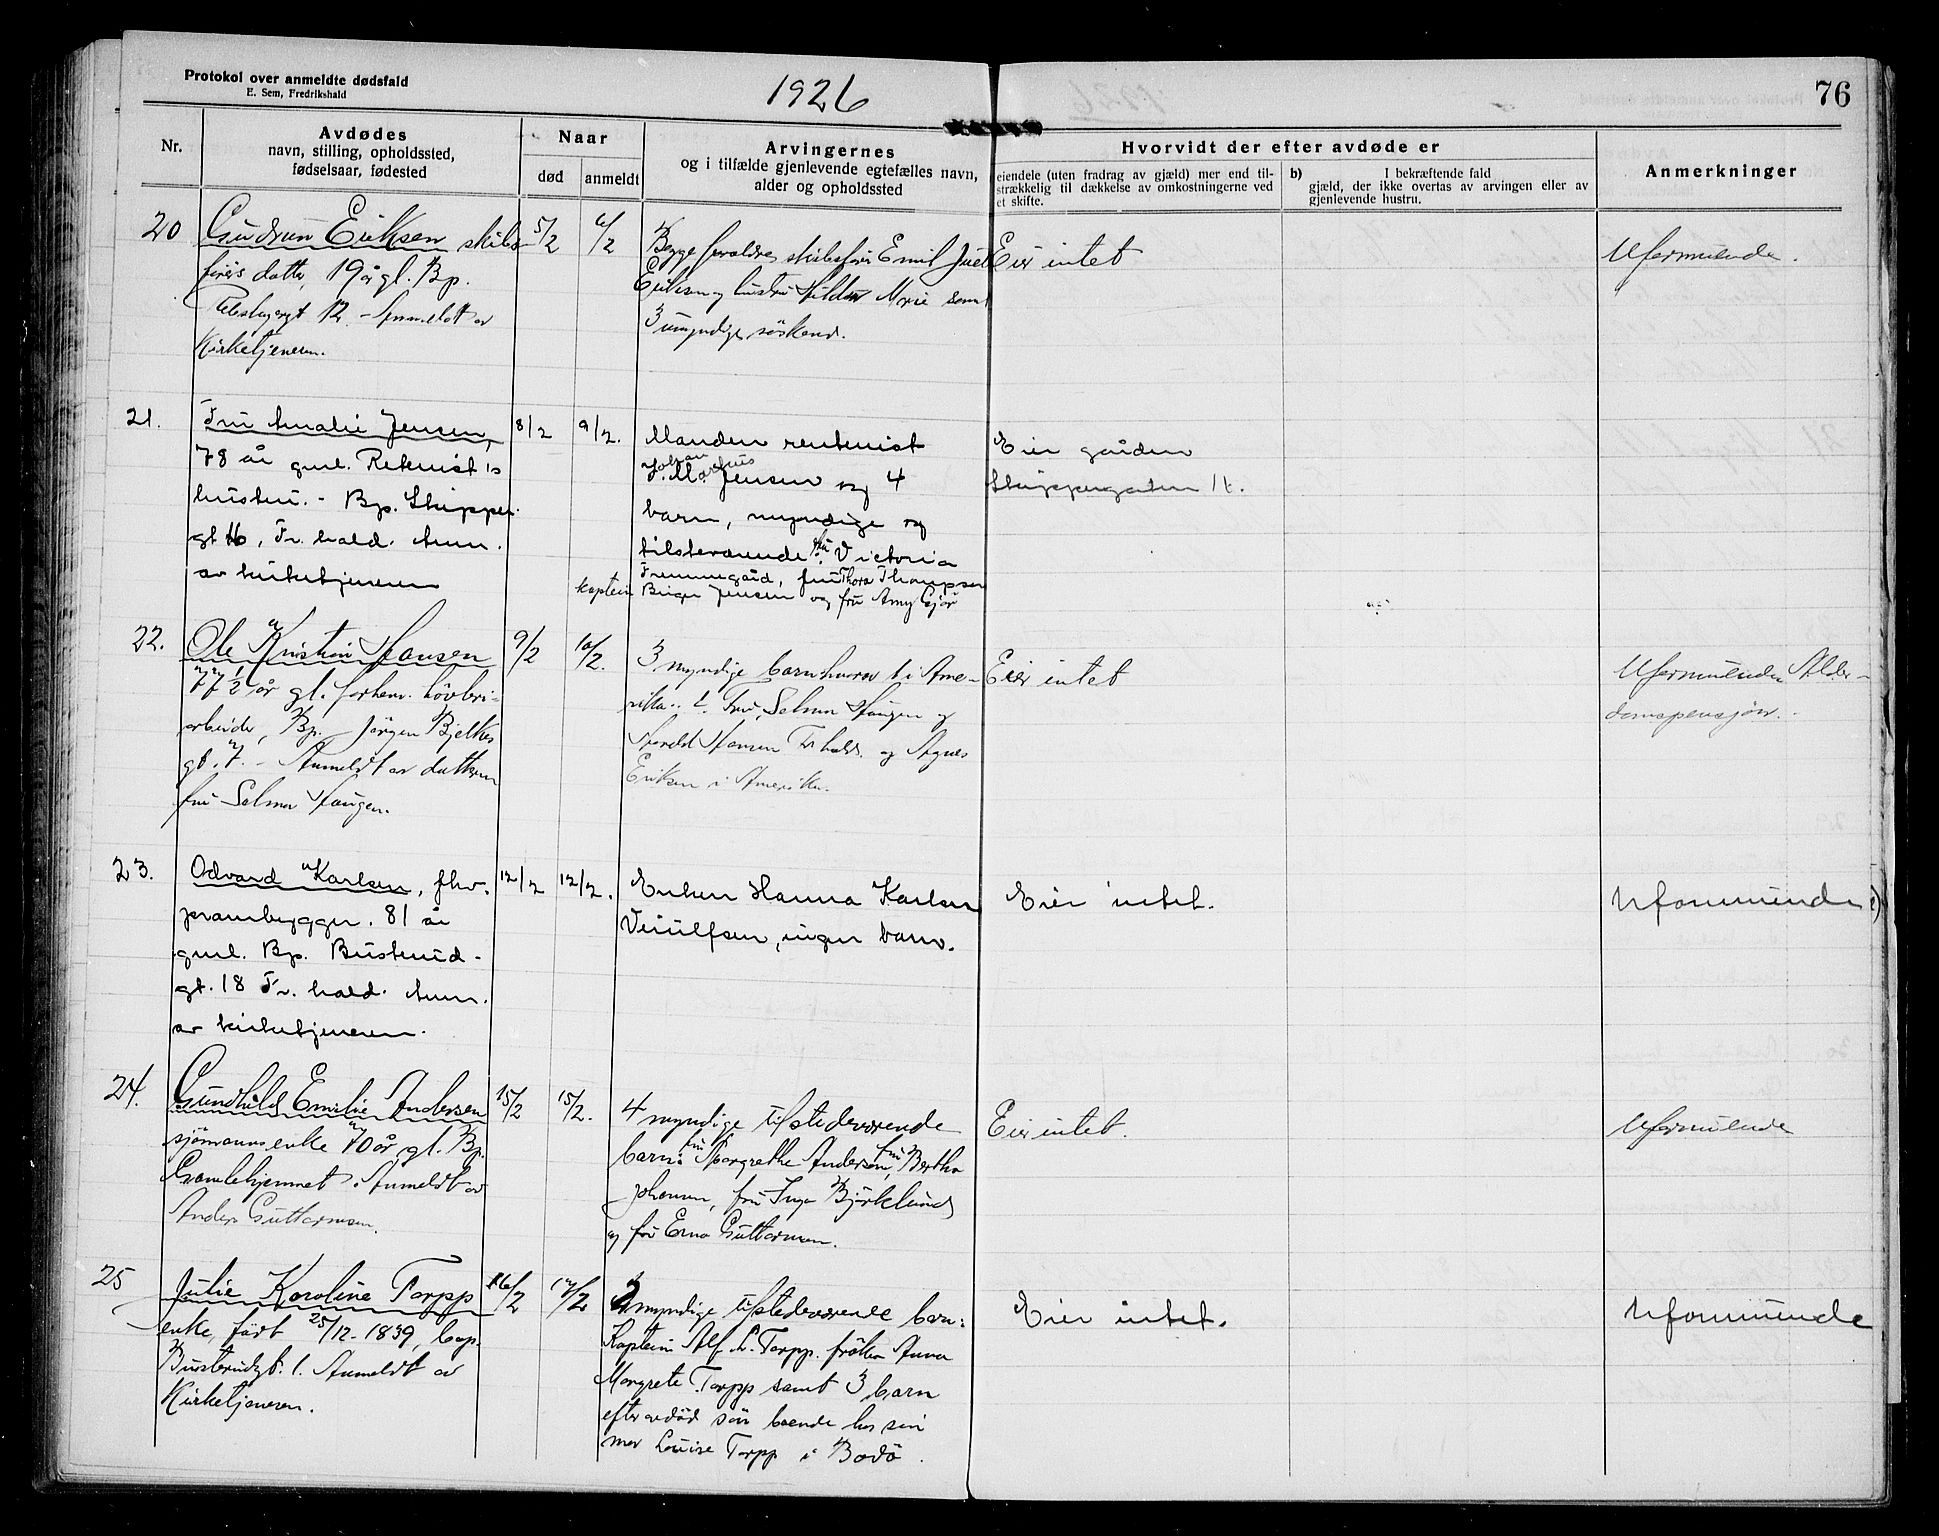 Protokol over anmeldte dødsfald
E. Sem, Fredrikshald
1926
76
Nr.
Avdødes
navn, stilling, opholdssted,
fødselsaar, fødested
Naar
død
anmeldt
Arvingernes
og i tilfælde gjenlevende egtefælles navn,
alder og opholdssted
Hvorvidt der efter avdøde er
eiendele (uten fradrag av gjæld) mer end til-
strækkelig til dækkelse av omkostningerne ved
et skifte.
b) I bekræftende fald
gjæld, der ikke overtas av arvingen eller av
gjenlevende hustru.
Anmerkninger
20
Gudrun Eriksen skibs-
förers datter, 19 år gl. Bp.
12. - Anmeldt av
Kirketjeneren.
5/2
6/2
Begge foraldre, skibsförer Emil Juel
Eriksen og hustru Marie samt
3 umyndige söskend.
Eier intet
Uformuende.
21.
Fru Amalie Jensen,
78 år gml. Retenist's
hustru. - Bp. Skipper-
gt 16, Fr. hald. Anm.
av kirketjeneren
8/2
9/2.
Manden rentenist
Johan Marius
J. M. Jensen og 4
barn, myndige og
tilsteværende: fru Victoria
Fremmegård, fru Thora Thompsen
kaptein Birger Jensen og fru Amy Gjør
Eier gården
Skippergaten 16.
22.
Ole Kristian Hansen
77 1/2 år gl. forhenv. tövleri-
arbeider, Bp. Jörgen Bjelkes
gt. 7. - Anmeldt av datteren
fru Selma Haugen.
9/2
10/2.
3 myndige barn hvorav 1 i Ame-
rika.: Fru Selma Haugen og
Harald Hansen Fr.hald. og Agnes
Eriksen i Amerika.
Eier intet
Uformuende, Alder-
domspensjon.
23.
Odvard Karlsen, fhv.
prambygger. 81 år
gml. Bp. Busterud-
gt. 18 Fr. hald. Anm.
av kirketjeneren.
12/2
12/2.
Enken Hanna Karlsen
Veiulfsen, ingen barn.
Eier intet.
Uformuende
24.
Gundhild Emilie Andersen
sjömanns enke 70 år, gl. Bp.
Gamlehjemmet. Anmeldt av
Anders Guttormsen.
15/2
15/2.
4 myndige tilstedeværende
barn: fru Margrethe Andersen, fru Bertha
Johansen, fru Inga Björklund
og fru Erna Guttormsen.
Eier intet.
Uformuende
25
Julie Karoline Torpp
enke, födt 25/12-1839, bop.
Busterudgt. 1. Anmeldt av
Kirketjeneren.
16/2
17/2
2 myndige tilstedeværende barn:
Kaptein Alf L. Torpp. fröken Anna
Margrete Torpp samt 3 barn
efter avdöd sön boende hos sin
mor Louise Torpp i Bodö.
Eier intet.
Uformuende